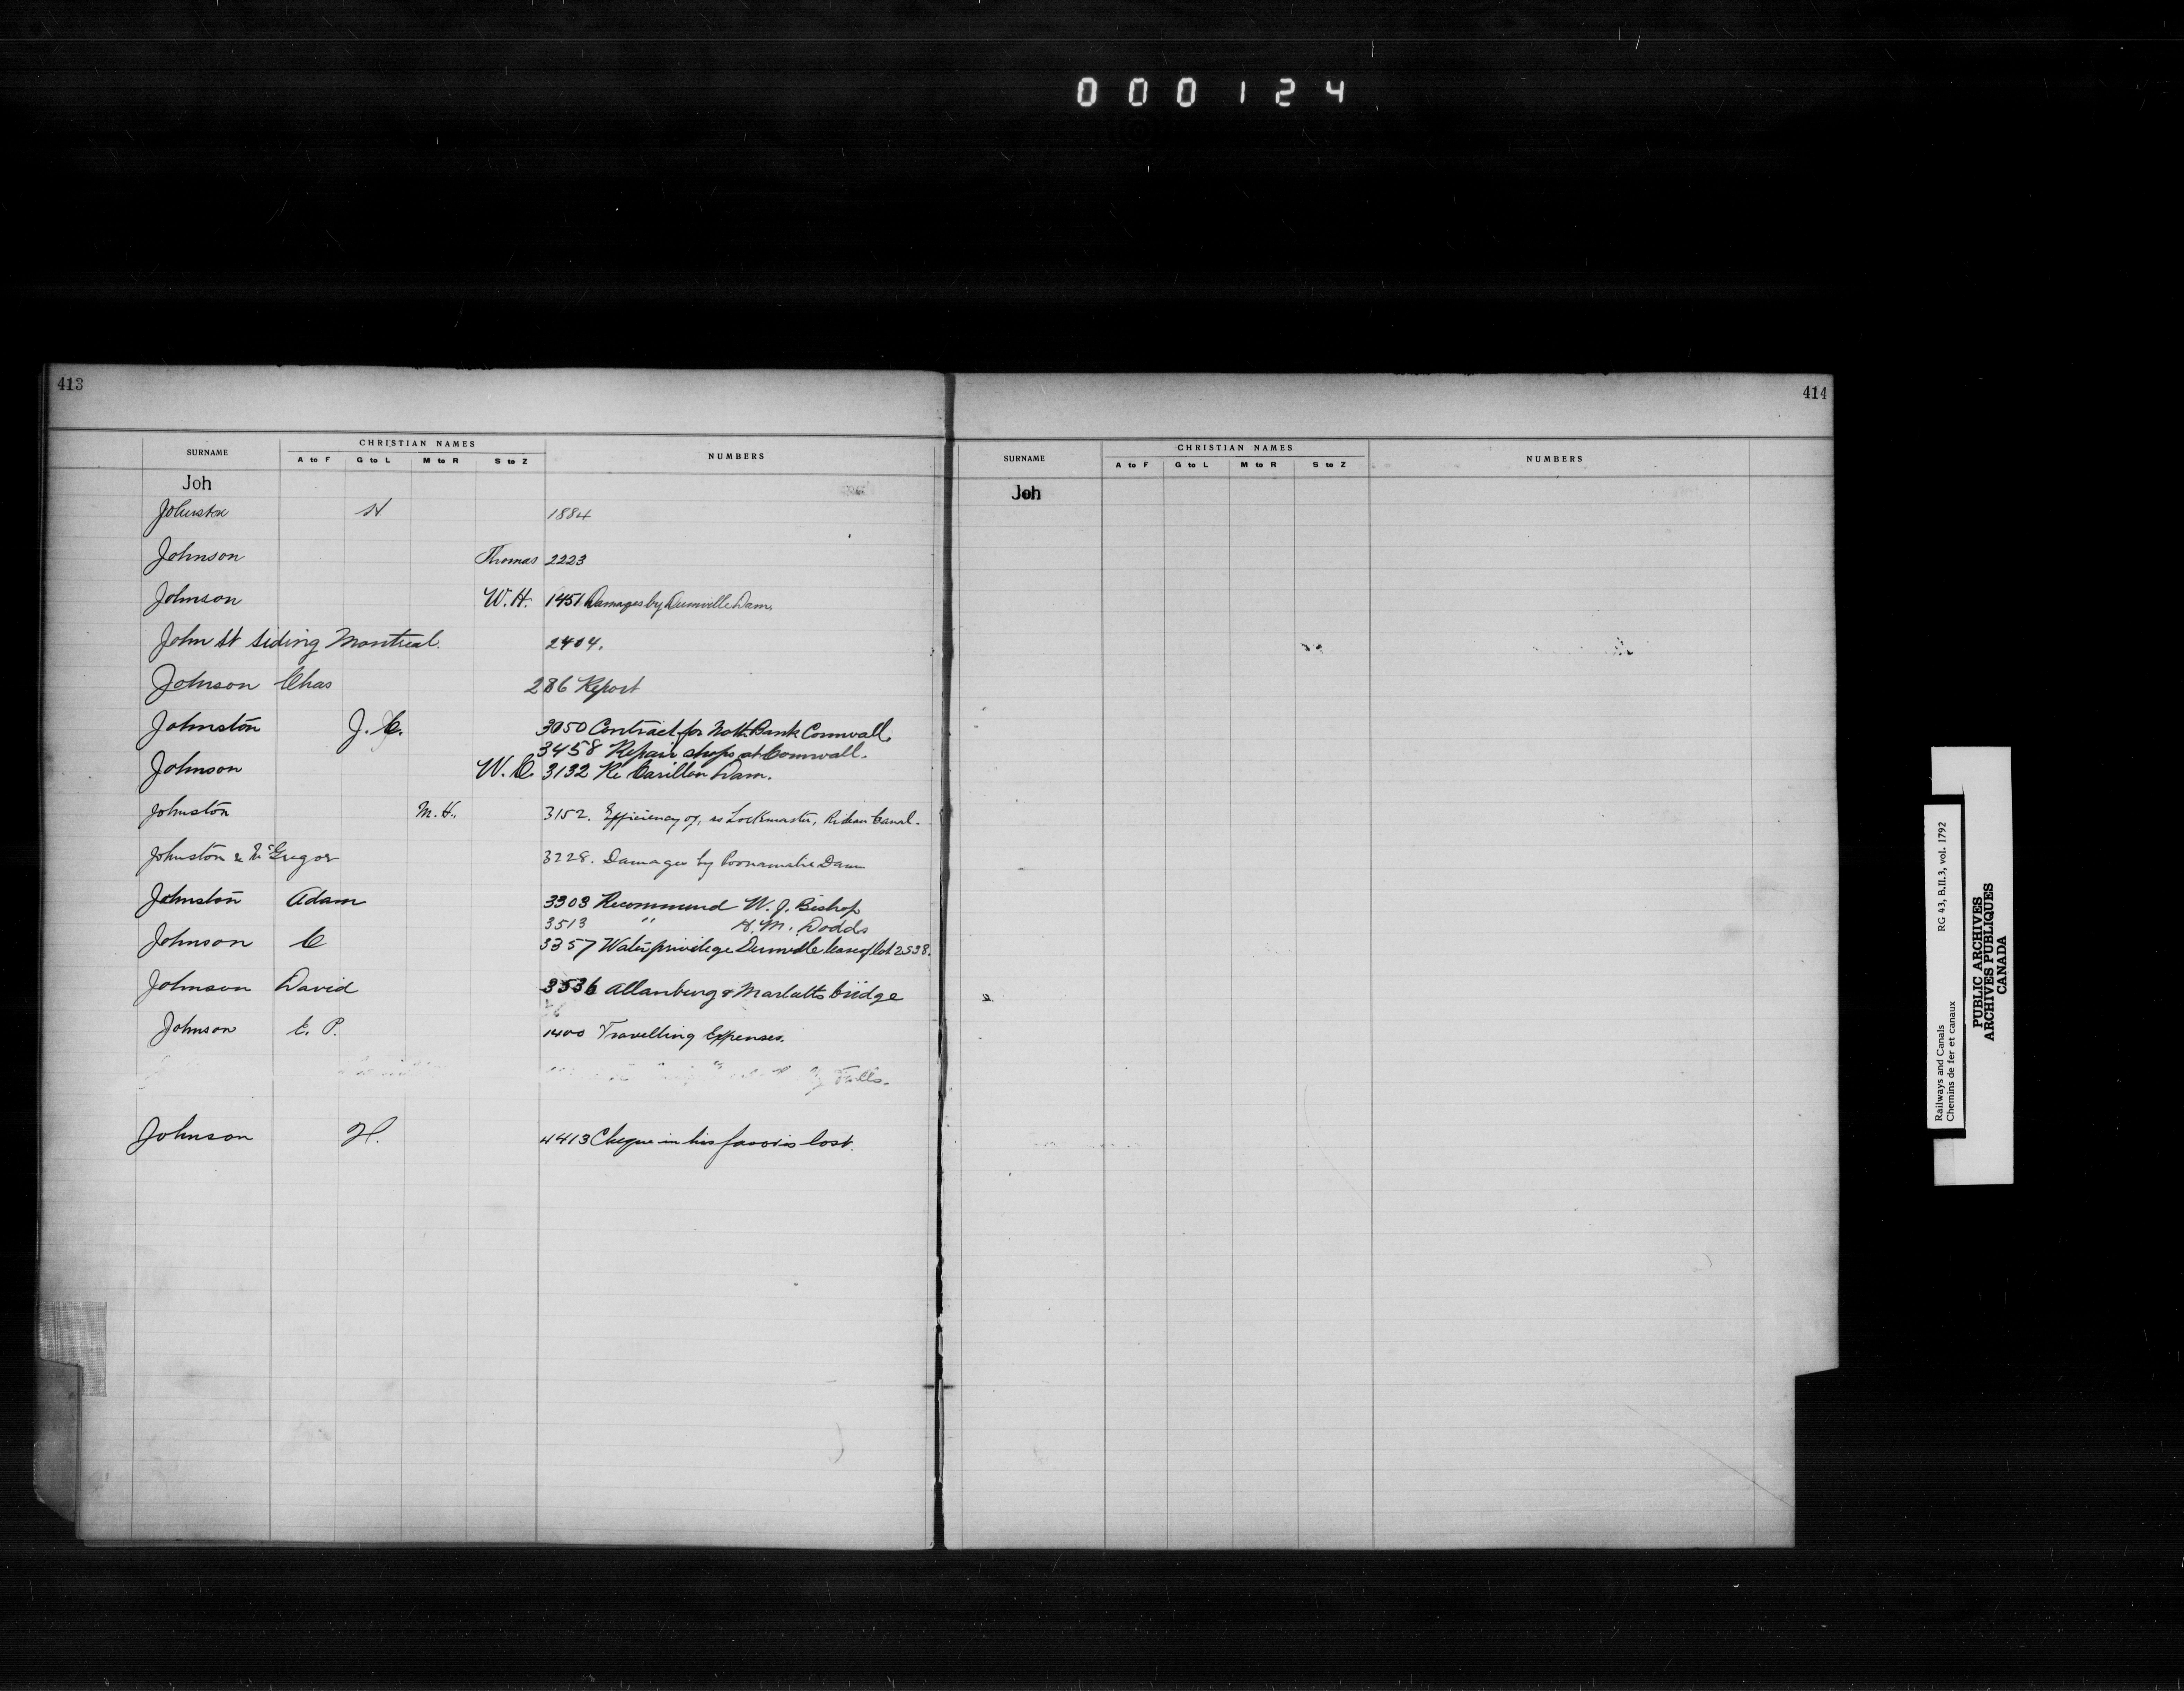 000124
413
SURNAME CHRISTIAN NAMES NUMBERS
A to F G to L M to R S to Z
Joh
Johnston H 1884
Johnson Thomas 2223
Johnson W. H. 1451 Damages by Dunnville Dam.
John St Siding Montreal. 2404.
Johnson Chas 286 Report
Johnston J. C. 3050 Contract for North Bank Cornwall.
3458 Repair shops at Cornwall.
Johnson W. C. 3132 Re Carillon Dam.
Johnston M. H. 3152. Efficiency of, as Lockmaster, Rideau Canal.
Johnston & McGregor 3228. Damages by Poonamalie Dam
Johnston Adam 3303 Recommend W. J. Bishop
3513 " H. M. Dodds
Johnson C 3357 Water privilege Dunnville lease of lot 2538.
Johnson David 3536 Allanburg & Marlatts bridge
Johnson E. P. 1400 Travelling Expenses.
Falls.
Johnson H. 4413 Cheque in his favor is lost.
414
SURNAME CHRISTIAN NAMES NUMBERS
A to F G to L M to R S to Z
Joh
Railways and Canals RG 43, B.II.3, vol. 1792
Chemins de fer et canaux
PUBLIC ARCHIVES
ARCHIVES PUBLIQUES
CANADA